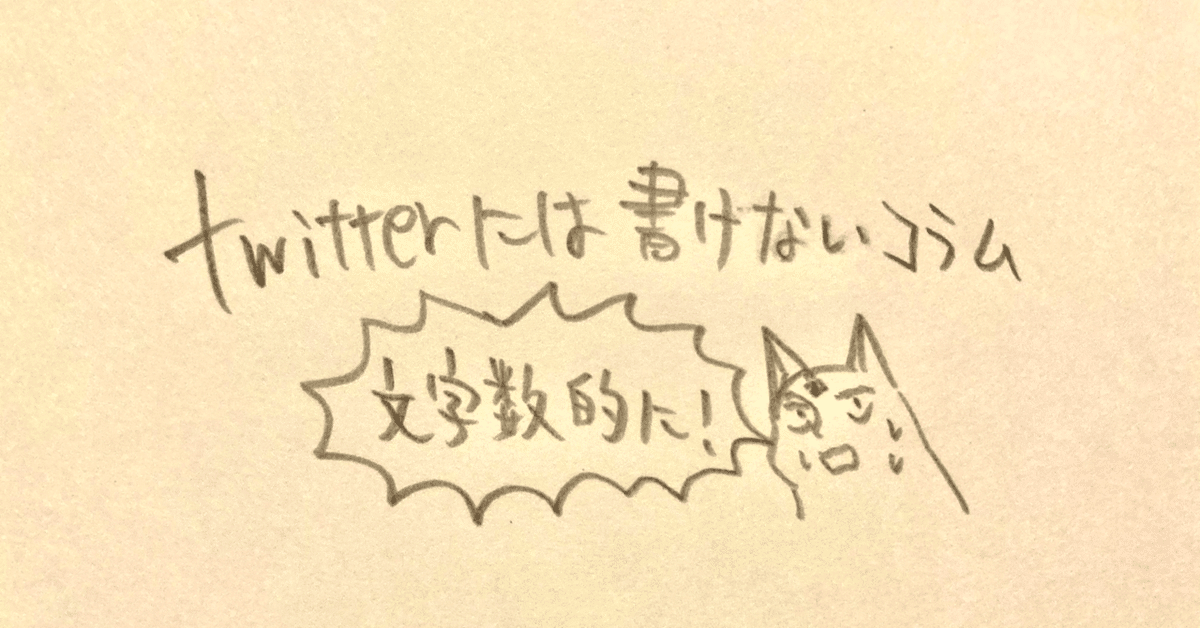 twitterには書けないコラム
文字数的に!